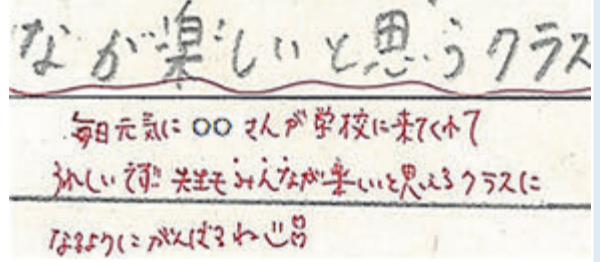 なが楽しいと思うクラス
毎日元気に○○さんが学校に来てくれて
うれしいです!! 先生もみんなが楽しいと思えるクラスに
なるようにがんばるね